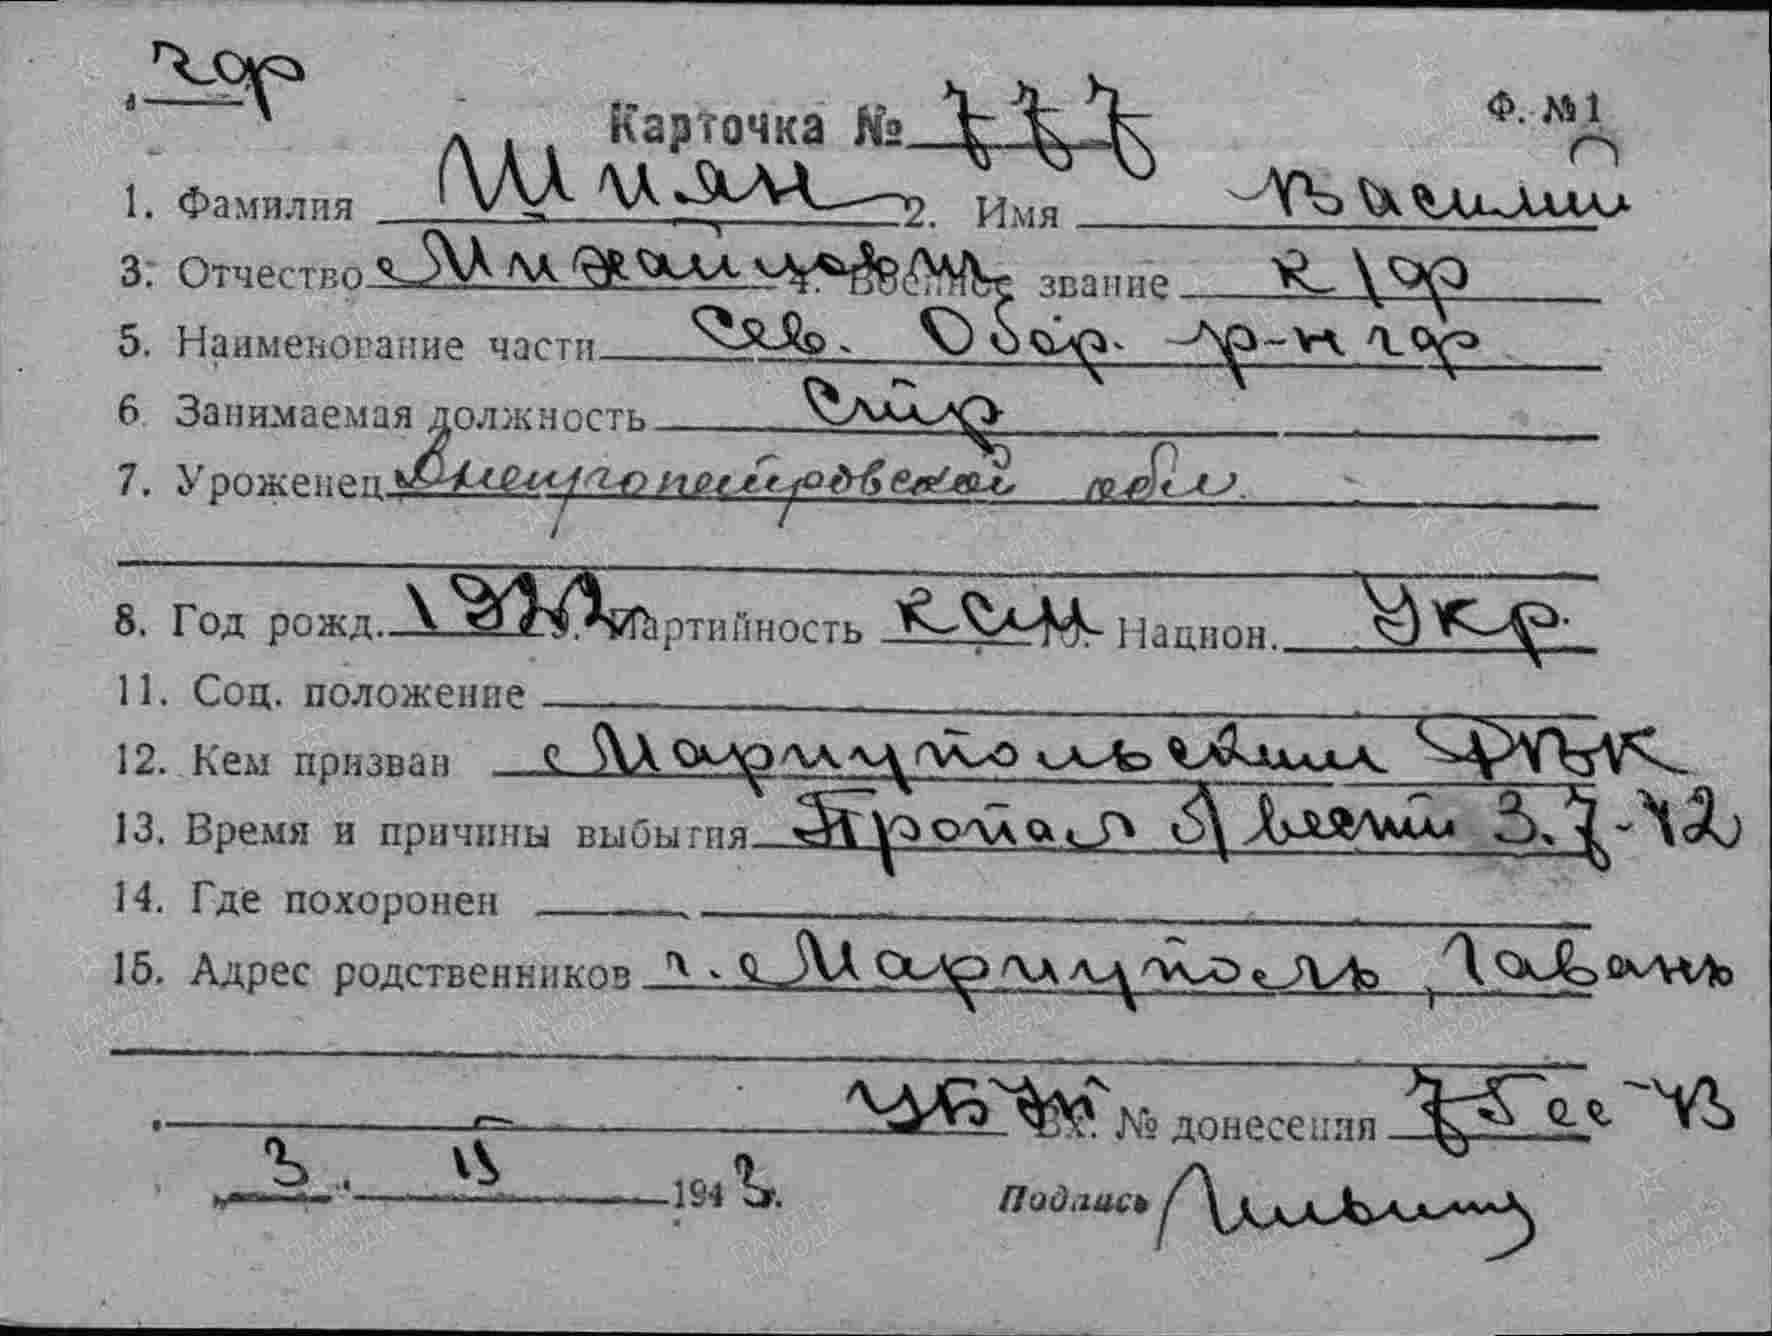 чф
Карточка № 777
Ф. №1
1. Фамилия Шиян 2. Имя Василий
3. Отчество Михайлович 4. Военное звание к/ф
5. Наименование части Сев. Обор. р-н чф
6. Занимаемая должность Стр
7. Уроженец Днепропетровской обл.
8. Год рожд. 1922 9. Партийность ксм 10. Национ. Укр.
11. Соц. положение
12. Кем призван Мариупольским РВК
13. Время и причины выбытия Пропал б/вести 3.7-42
14. Где похоронен
15. Адрес родственников г. Мариуполь, Гавань
Вх. № донесения 75сс-43
„3" II 1943.
Подпись